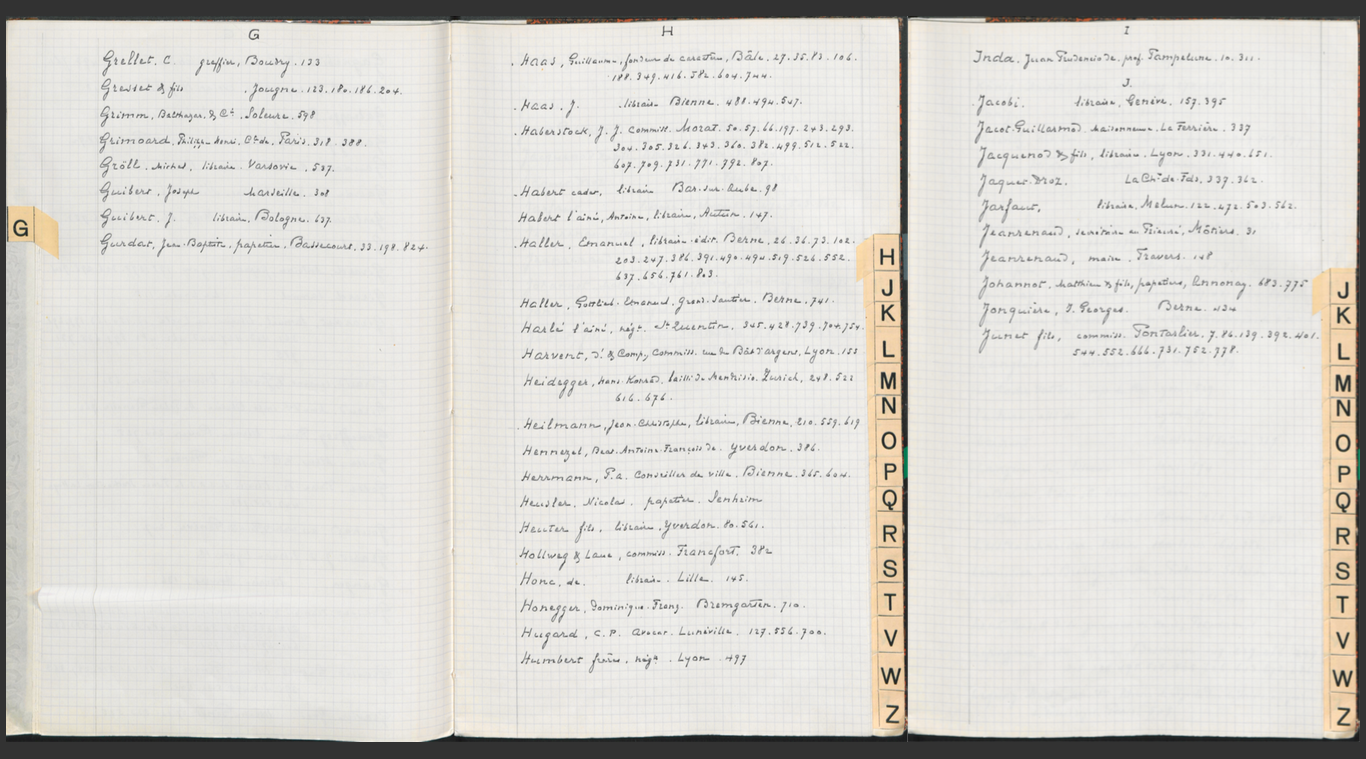 G
Grellet. C. greffier, Boudry. 133
Gresset & fils . Jougne. 123. 180. 186. 204.
Grimm, Balthazar. & Cie. Soleure. 598
Grimoard, Philippe-Henri, Cte de. Paris. 318. 388.
Gröll. Michel, libraire. Varsovie. 537.
Guibert, Joseph Marseille. 308
Guibert. J. libraire, Bologne. 637.
Gurdat, Jean-Baptiste, papetier, Bassecourt. 33. 198. 824.
G
H
Haas, Guillaume, fondeur de caractères, Bâle. 27. 35. 83. 106.
188. 349. 416. 582. 604. 744.
Haas, J. libraire Bienne. 488. 494. 507.
Haberstock, J. J. Commiss. Morat. 50. 57. 66. 197. 243. 293.
304. 305. 326. 343. 360. 382. 499. 512. 522.
607. 709. 731. 771. 792. 807.
Habert cadet, libraire Bar-sur-Aube. 98
Habert l'ainé, Antoine, libraire, Autun. 147.
Haller, Emanuel, libraire-édit. Berne, 26. 36. 73. 102.
203. 247. 386. 391. 490. 494. 519. 526. 552.
637. 656. 761. 803.
Haller, Gottlieb-Emanuel, Grand-Sautier, Berne. 741.
Harlé l'ainé, négt. St Quentin, 345. 428. 739. 704. 754.
Harvent, D. & Comp, Commiss. rue du Bât d'argent, Lyon. 153
Heidegger, Hans-Konrad, bailli de Mendrisio. Zurich, 248. 522
616. 676.
Heilmann, Jean-Christophe, libraire, Bienne, 210. 559. 619
Hennezel, Beat-Antoine-François de. Yverdon. 386.
Herrmann, P.a. Conseiller de ville. Bienne. 365. 604.
Heusler, Nicolas. papetier. Senheim
Heuter fils, libraire, Yverdon. 80. 561.
Hollweg & Laue, commiss. Francfort. 382
Honc, de. libraire. Lille. 145.
Honegger, Dominique-Franz. Bremgarten. 710.
Hugard, C.P. avocat. Lunéville. 127. 556. 700.
Humbert frères, négts. Lyon. 497
H
J
K
L
M
N
O
P
Q
R
S
T
V
W
Z
I
Inda. Juan Prudencio de, prof. Pampelune. 10. 311.
J.
Jacobi. libraire, Genève, 157. 395
Jacot-Guillarmod. Maisonneuve. La Ferrière. 337
Jacquenod & fils, libraire. Lyon. 331. 440. 651.
Jaquet-Droz. La Chx-de-Fds, 337. 362.
Jarfaut, libraire, Melun. 122. 472. 503. 562.
Jeanrenaud, secrétaire du Prieuré, Môtiers. 31
Jeanrenaud, maire. Travers. 148
Johannot, Matthieu & fils, papetiers, Annonay. 683. 775
Jonquière, J. Georges. Berne. 434
Junet fils, commiss. Pontarlier. 7. 86. 139. 392. 401.
544. 552. 666. 731. 752. 778.
J
K
L
M
N
O
P
Q
R
S
T
V
W
Z